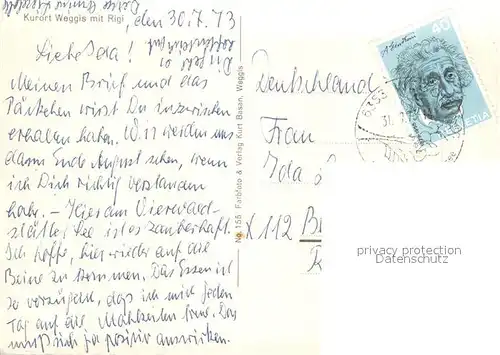 Kurort Weggis mit Rigi
den 30.7.73
Liebe Ida!
Meinen Brief und das
Päckchen wirst Du inzwischen
erhalten haben. Wir werden uns
dann Ende August sehen, wenn
ich Dich richtig verstanden
habe. – Hier am Vierwald-
stätter See ist es zauberhaft.
Ich hoffe, hier wieder auf die
Beine zu kommen. Das Essen ist
so vorzüglich, daß ich mich jeden
Tag auf die Mahlzeiten freue. Das
muß sich ja positiv auswirken.
No. 155 Farbfoto & Verlag Kurt Basan, Weggis
Deutschland
Frau
Ida
112
40
HELVETIA
6353
31.
privacy protection
Datenschutz